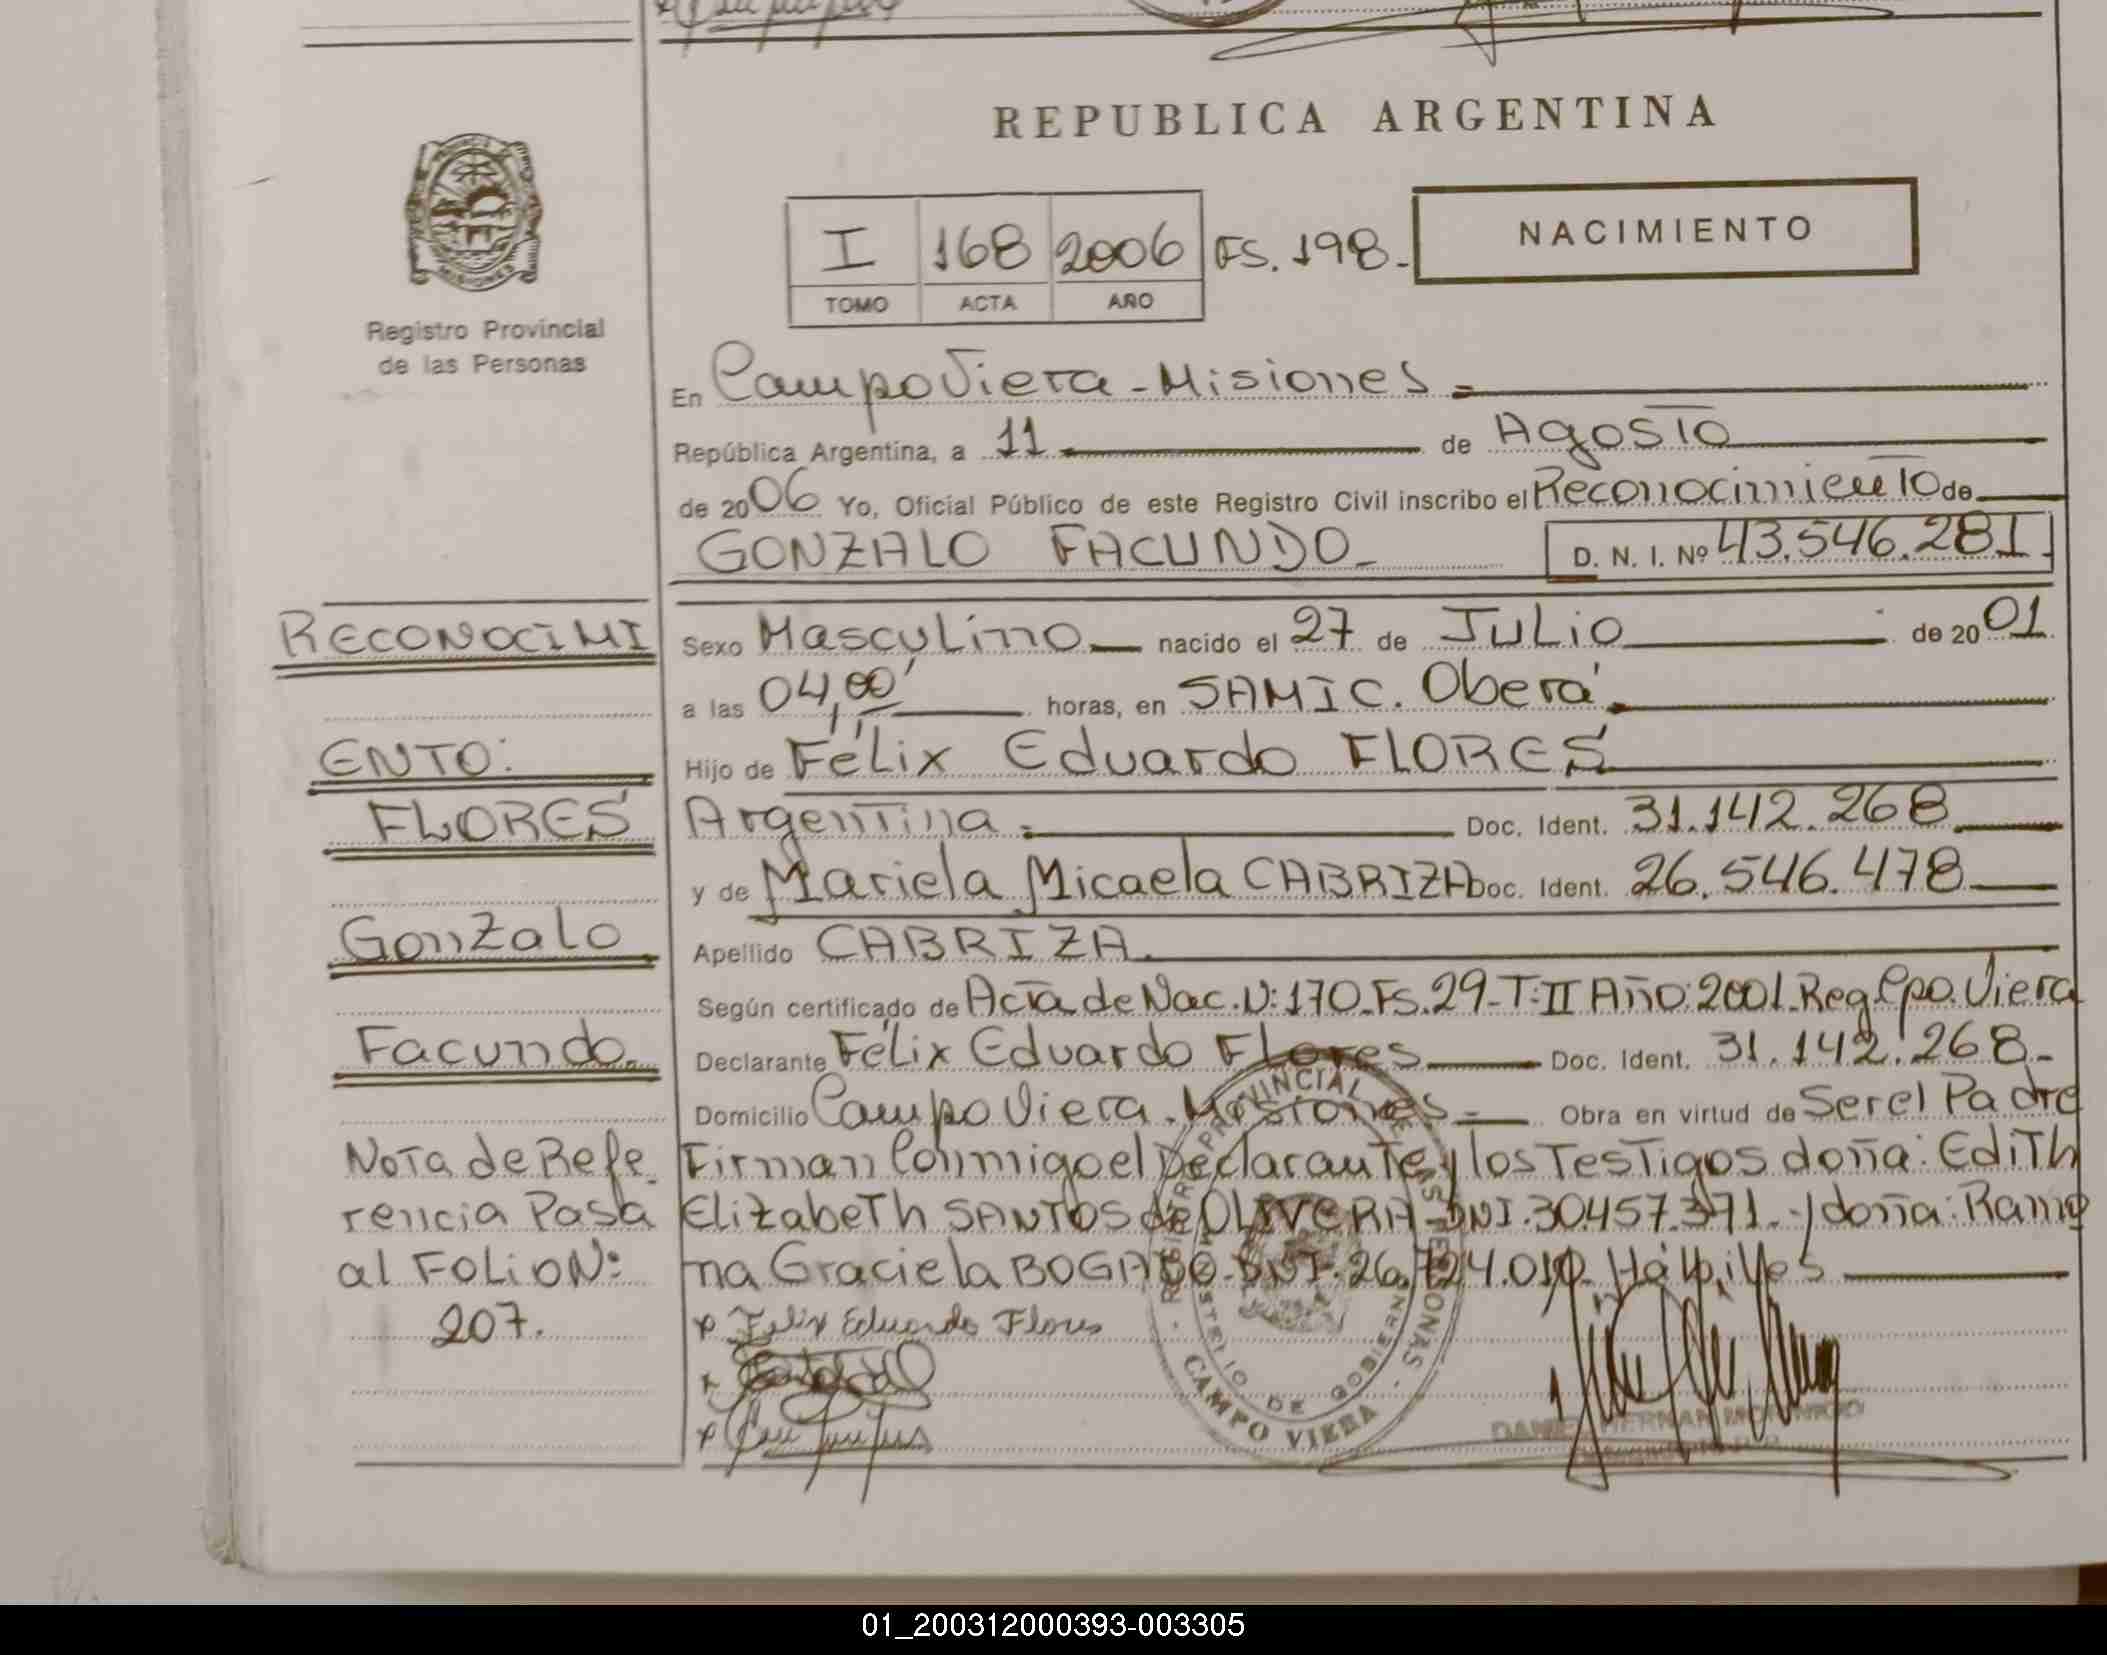 REPUBLICA ARGENTINA
I 168 2006 FS. 198.-
TOMO ACTA AÑO
NACIMIENTO
Registro Provincial
de las Personas
En Campo Viera - Misiones.=
República Argentina, a 11 de Agosto
de 2006 Yo, Oficial Público de este Registro Civil inscribo el Reconocimiento de
GONZALO FACUNDO.- D. N. I. Nº 43.546.281.
RECONOCIMI
Sexo Masculino nacido el 27 de Julio de 2001
a las 04,00' horas, en SAMIC. Oberá.
ENTO:
Hijo de Félix Eduardo FLORES
FLORES
Argentina.= Doc. Ident. 31.142.268
y de Mariela Micaela CABRIZA Doc. Ident. 26.546.478
Gonzalo
Apellido CABRIZA.
Según certificado de Acta de Nac. N: 170-Fs.29-T:II Año:2001.Reg.Cpo.Viera
Facundo.
Declarante Félix Eduardo Flores Doc. Ident. 31.142.268.-
Domicilio Campo Viera. Misiones.= Obra en virtud de Ser el Padre
Nota de Refe
Firman Conmigo el Declarante y los Testigos doña: Edith
rencia Pasa
Elizabeth SANTOS de OLIVERA-DNI.30.457.371.-y doña: Ramo
al FOLIO N:
na Graciela BOGADO-DNI.26.724.010.
207.
x Felix Eduardo Flores
REGISTRO PROVINCIAL DE LAS PERSONAS
MINISTERIO DE GOBIERNO
CAMPO VIERA
01_200312000393-003305